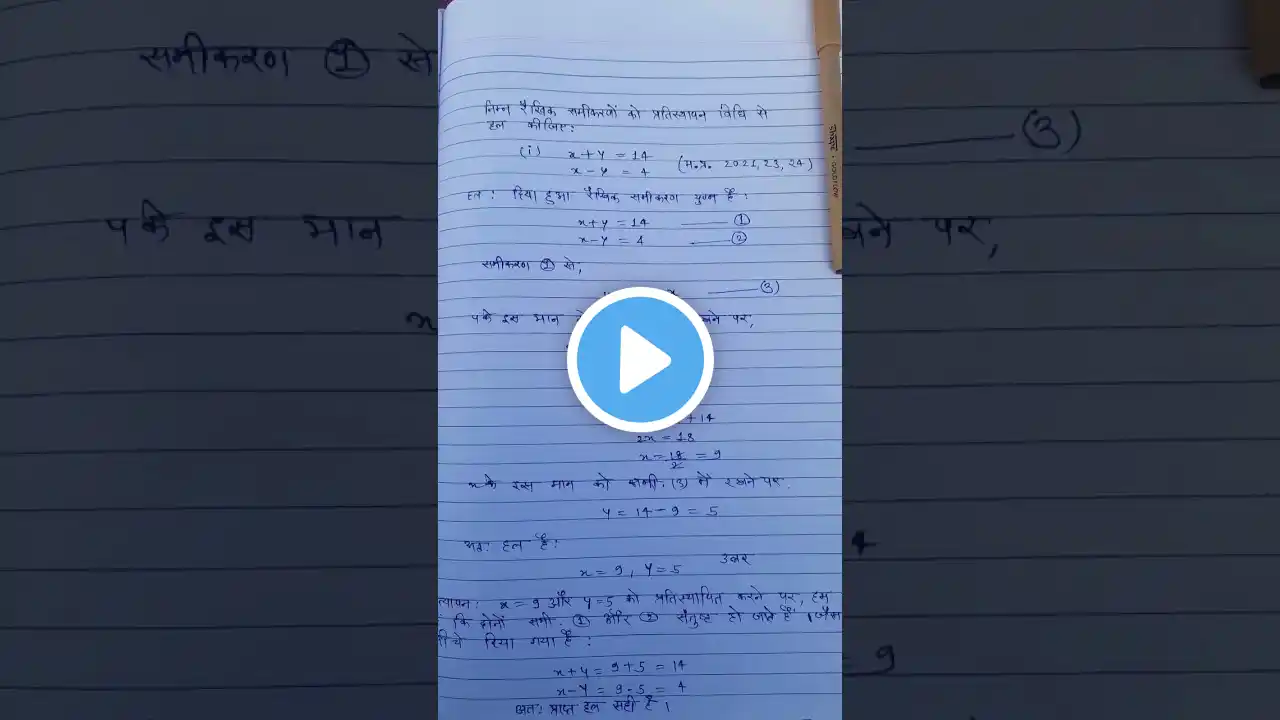 निम्न रैखिक समीकरणों को प्रतिस्थापन विधि से
हल कीजिए:
(i) x + y = 14
x - y = 4 (म.प्र. 2021, 23, 24)
हल: दिया हुआ रैखिक समीकरण युग्म है:
x + y = 14 —— ①
x - y = 4 —— ②
समीकरण ① से,
x —— (3)
y के इस मान रखने पर,
+ 14
2x = 18
x = 18/2 = 9
x के इस मान को समी. (3) में रखने पर.
y = 14 - 9 = 5
अतः हल है:
x = 9, y = 5 उत्तर
त्यापन: x = 9 और y = 5 को प्रतिस्थापित करने पर, हम
कि दोनों समी. ① और ② संतुष्ट हो जाते हैं। जैसा
नीचे दिया गया है:
x + y = 9 + 5 = 14
x - y = 9 - 5 = 4
अतः प्राप्त हल सही है।
समीकरण ① से
—— (3)
y के इस मान
खने पर,
x
4
= 9